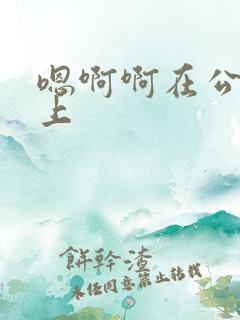 嗯啊啊在公
上
餅幹渣
未经同意禁止转载